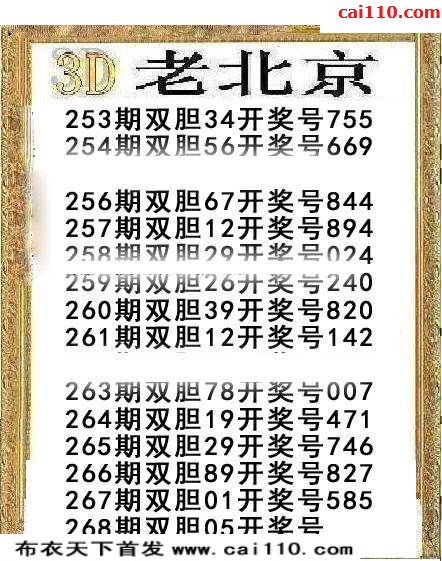 cai110.com
3D 老北京
253期双胆34开奖号755
254期双胆56开奖号669
256期双胆67开奖号844
257期双胆12开奖号894
258期双胆29开奖号024
259期双胆26开奖号240
260期双胆39开奖号820
261期双胆12开奖号142
263期双胆78开奖号007
264期双胆19开奖号471
265期双胆29开奖号746
266期双胆89开奖号827
267期双胆01开奖号585
268期双胆05开奖号
布衣天下首发 www.cai110.com